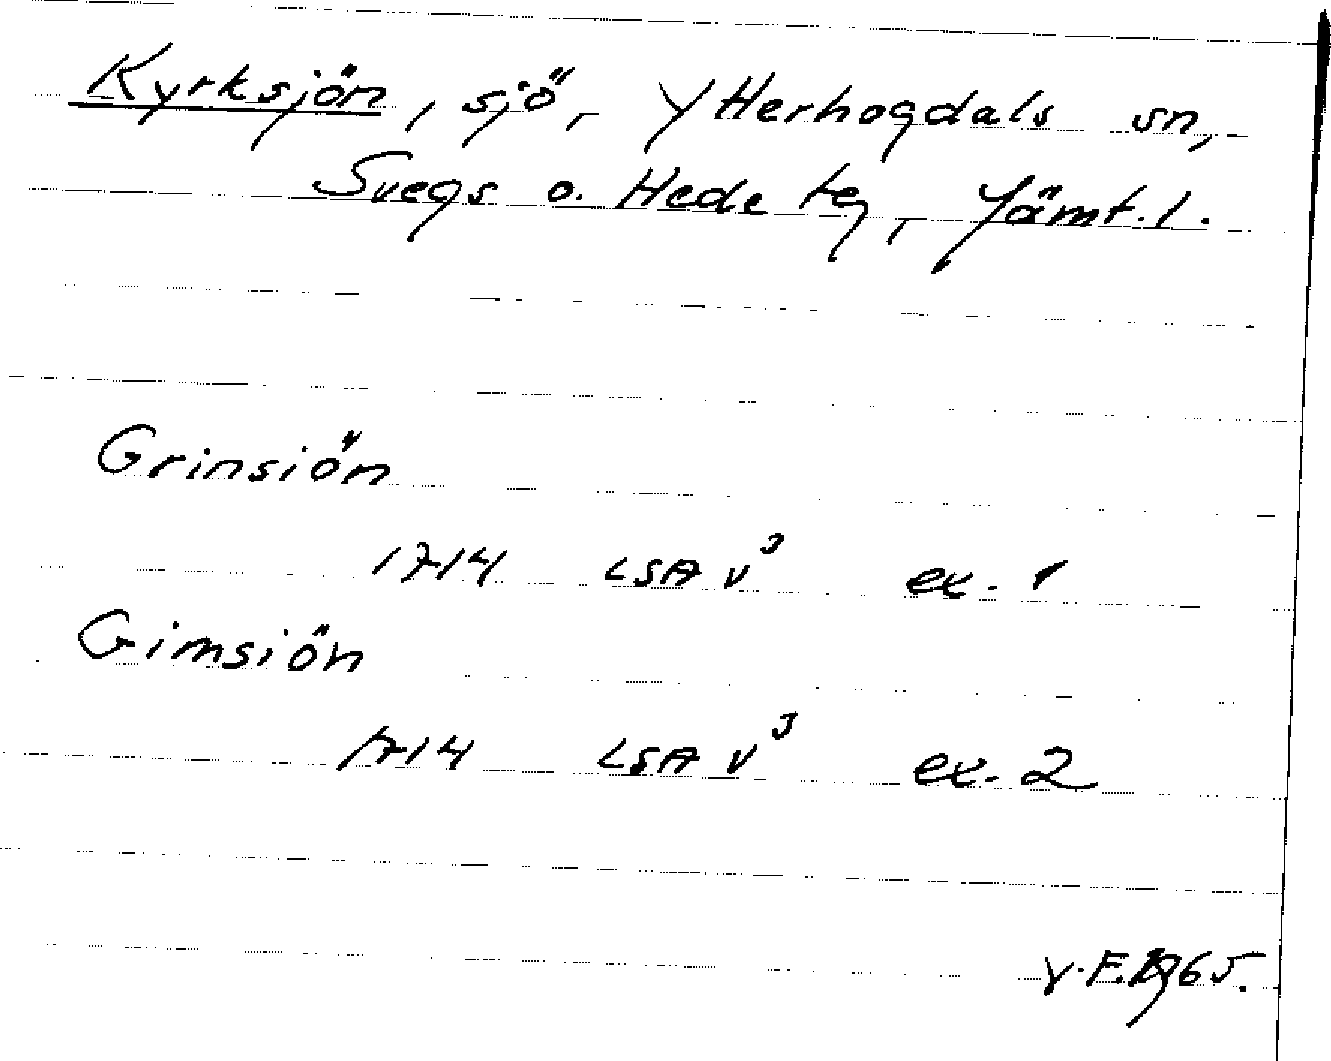 Kyrksjön, sjö, Ytterhogdals sn,
Svegs o. Hede tg, Jämt.l.
Grinsiön
1714 LSA V³ ex. 1
Gimsiön
1714 LSA V³ ex. 2
Y.F. 1965.